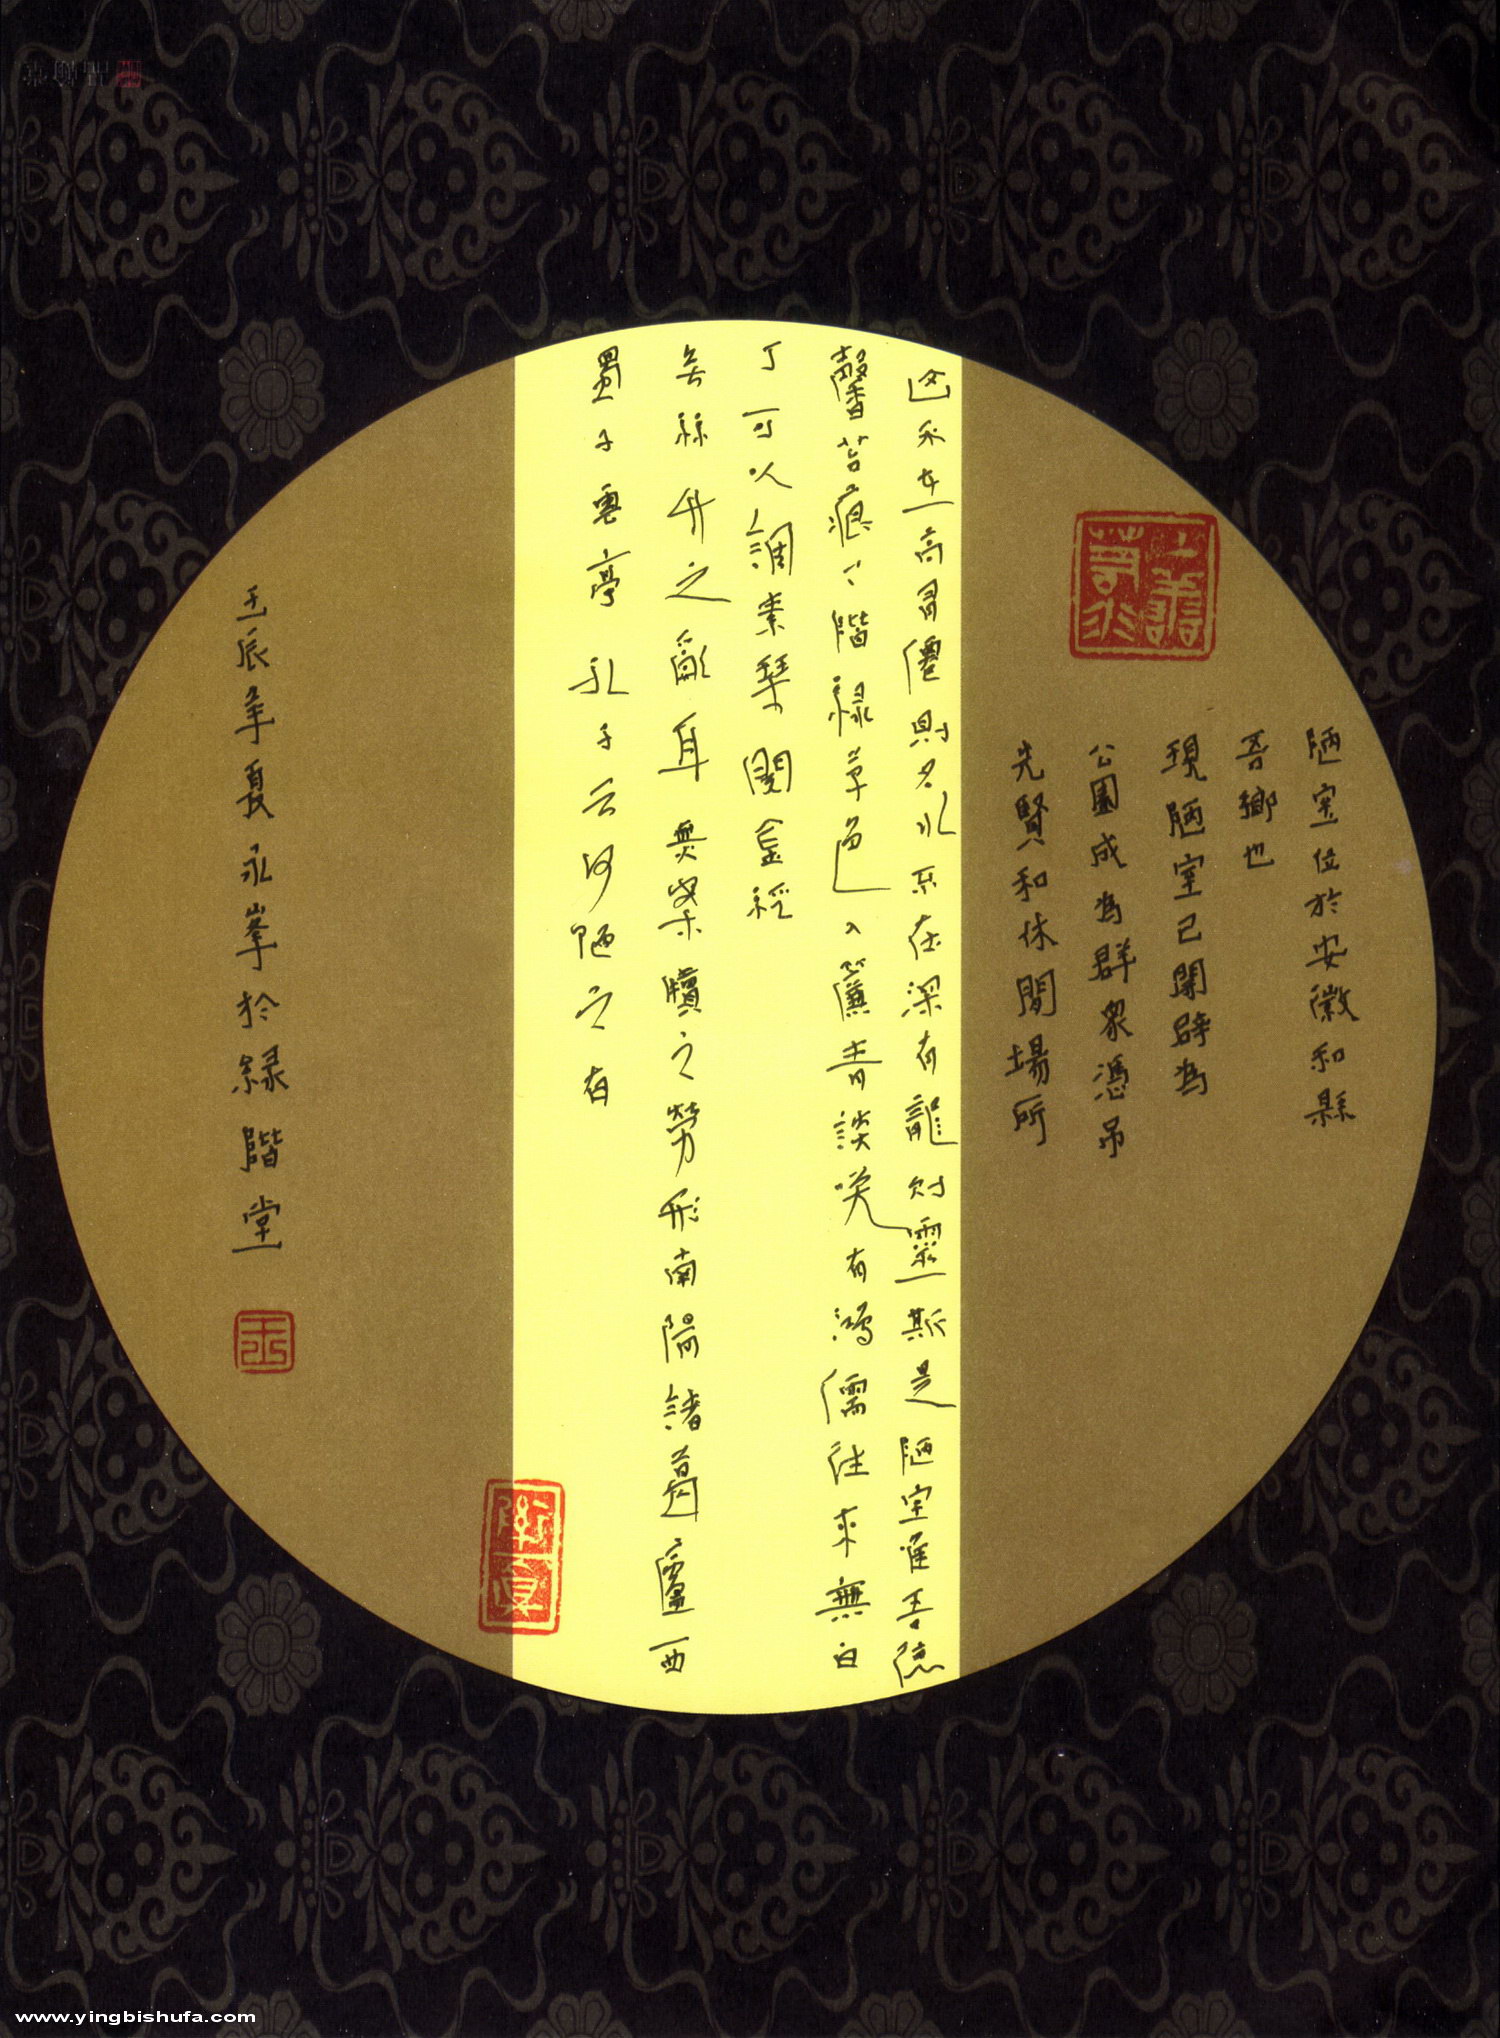 陋室位於安徽和縣
吾鄉也
現陋室已開辟為
公園成為群眾憑吊
先賢和休閒場所
山不在高有僊則名水不在深有龍則靈斯是陋室惟吾德
馨苔痕上階緑草色入簾青談笑有鴻儒往來無白
丁可以調素琴閱金經
無絲竹之亂耳無案牘之勞形南陽諸葛廬西
蜀子雲亭孔子云何陋之有
壬辰年夏永峯於緑階堂
www.yingbishufa.com